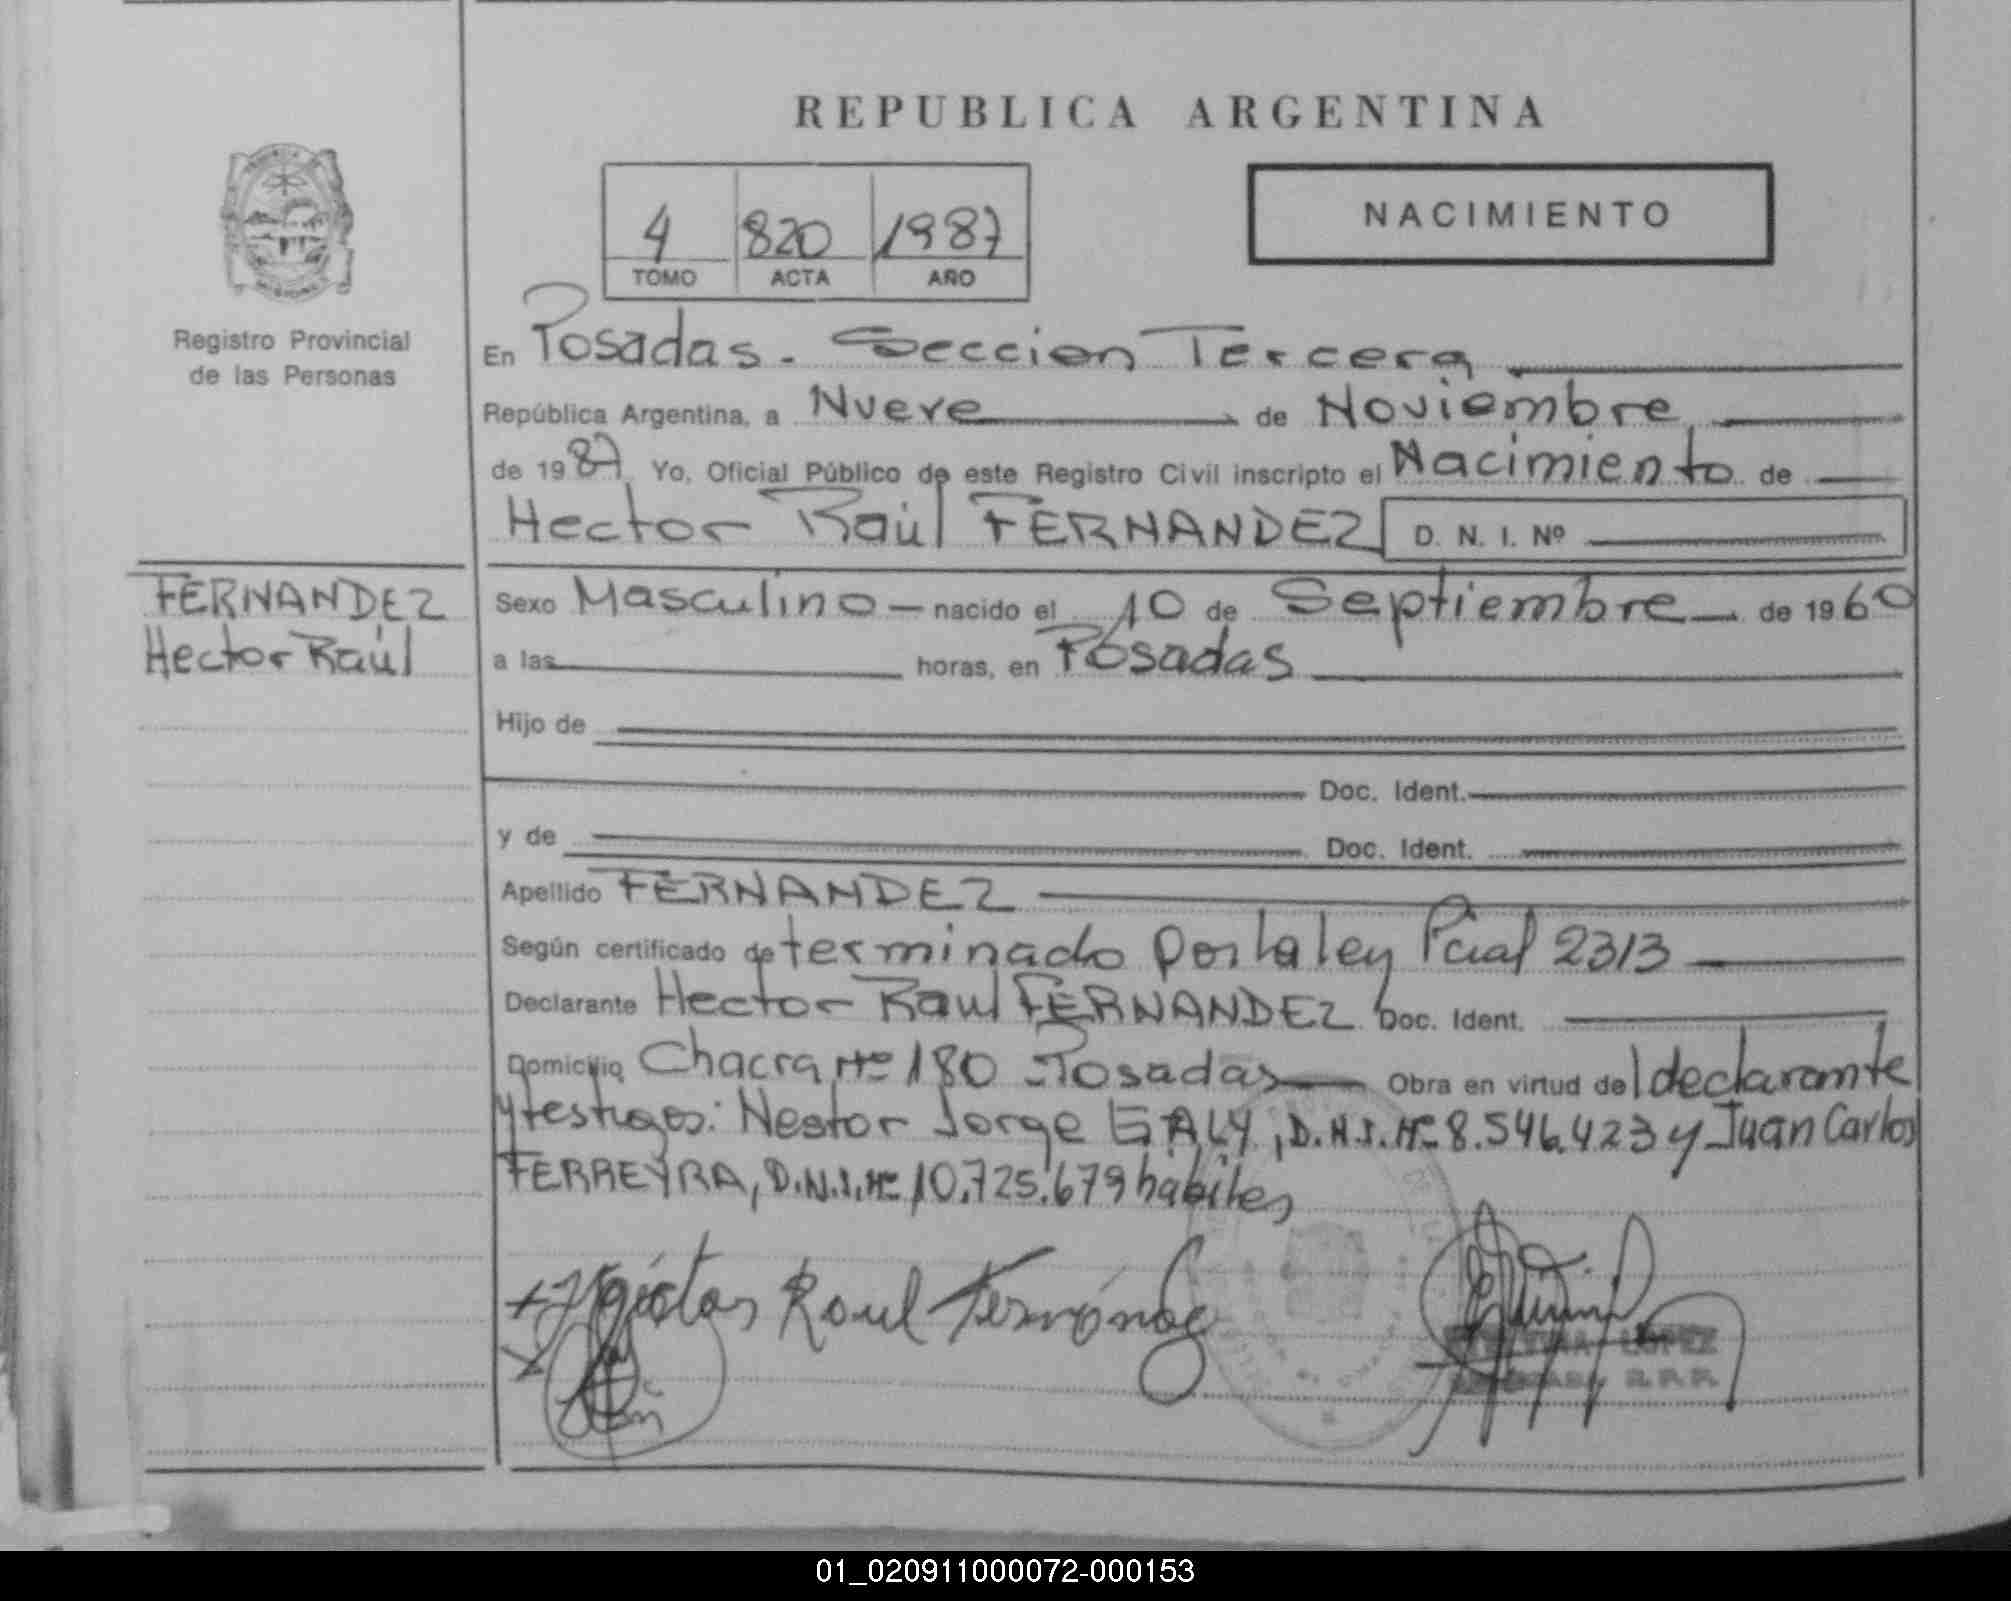 REPUBLICA ARGENTINA
4 820 1987
TOMO ACTA AÑO
NACIMIENTO
MISIONES
Registro Provincial
de las Personas
En Posadas. Seccion Tercera
República Argentina, a Nueve de Noviembre
de 1987 Yo, Oficial Público de este Registro Civil inscripto el Nacimiento de
Hector Raúl FERNANDEZ D. N. I. Nº
FERNANDEZ
Hector Raúl
Sexo Masculino — nacido el 10 de Septiembre de 1960
a las horas, en Posadas
Hijo de
Doc. Ident.
y de Doc. Ident.
Apellido FERNANDEZ
Según certificado determinado por la ley Pcial 2313
Declarante Hector Raul FERNANDEZ Doc. Ident.
Domicilio Chacra Nº 180 - Posadas Obra en virtud del declarante
y testigos: Nestor Jorge GALY, D.N.I. Nº 8.546.423 y Juan Carlos
FERREYRA, D.N.I. Nº 10.725.679 habiles
Raul
LOPEZ
R.P.P.
01_020911000072-000153